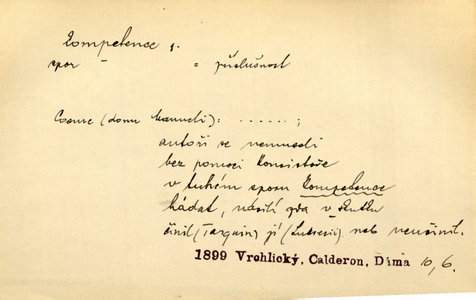 kompetence f.
spor = příslušnost
Cosme (donu Manueli): . . . . . . ;
autoři se nemusili
bez pomoci Konsistoře
v tuhém sporu kompetence
hádat, násilí zda v skutku
činil (Tarquin) jí (Lukrecii) neb neučinil.
1899 Vrchlický, Calderon, Dáma 10, 6.